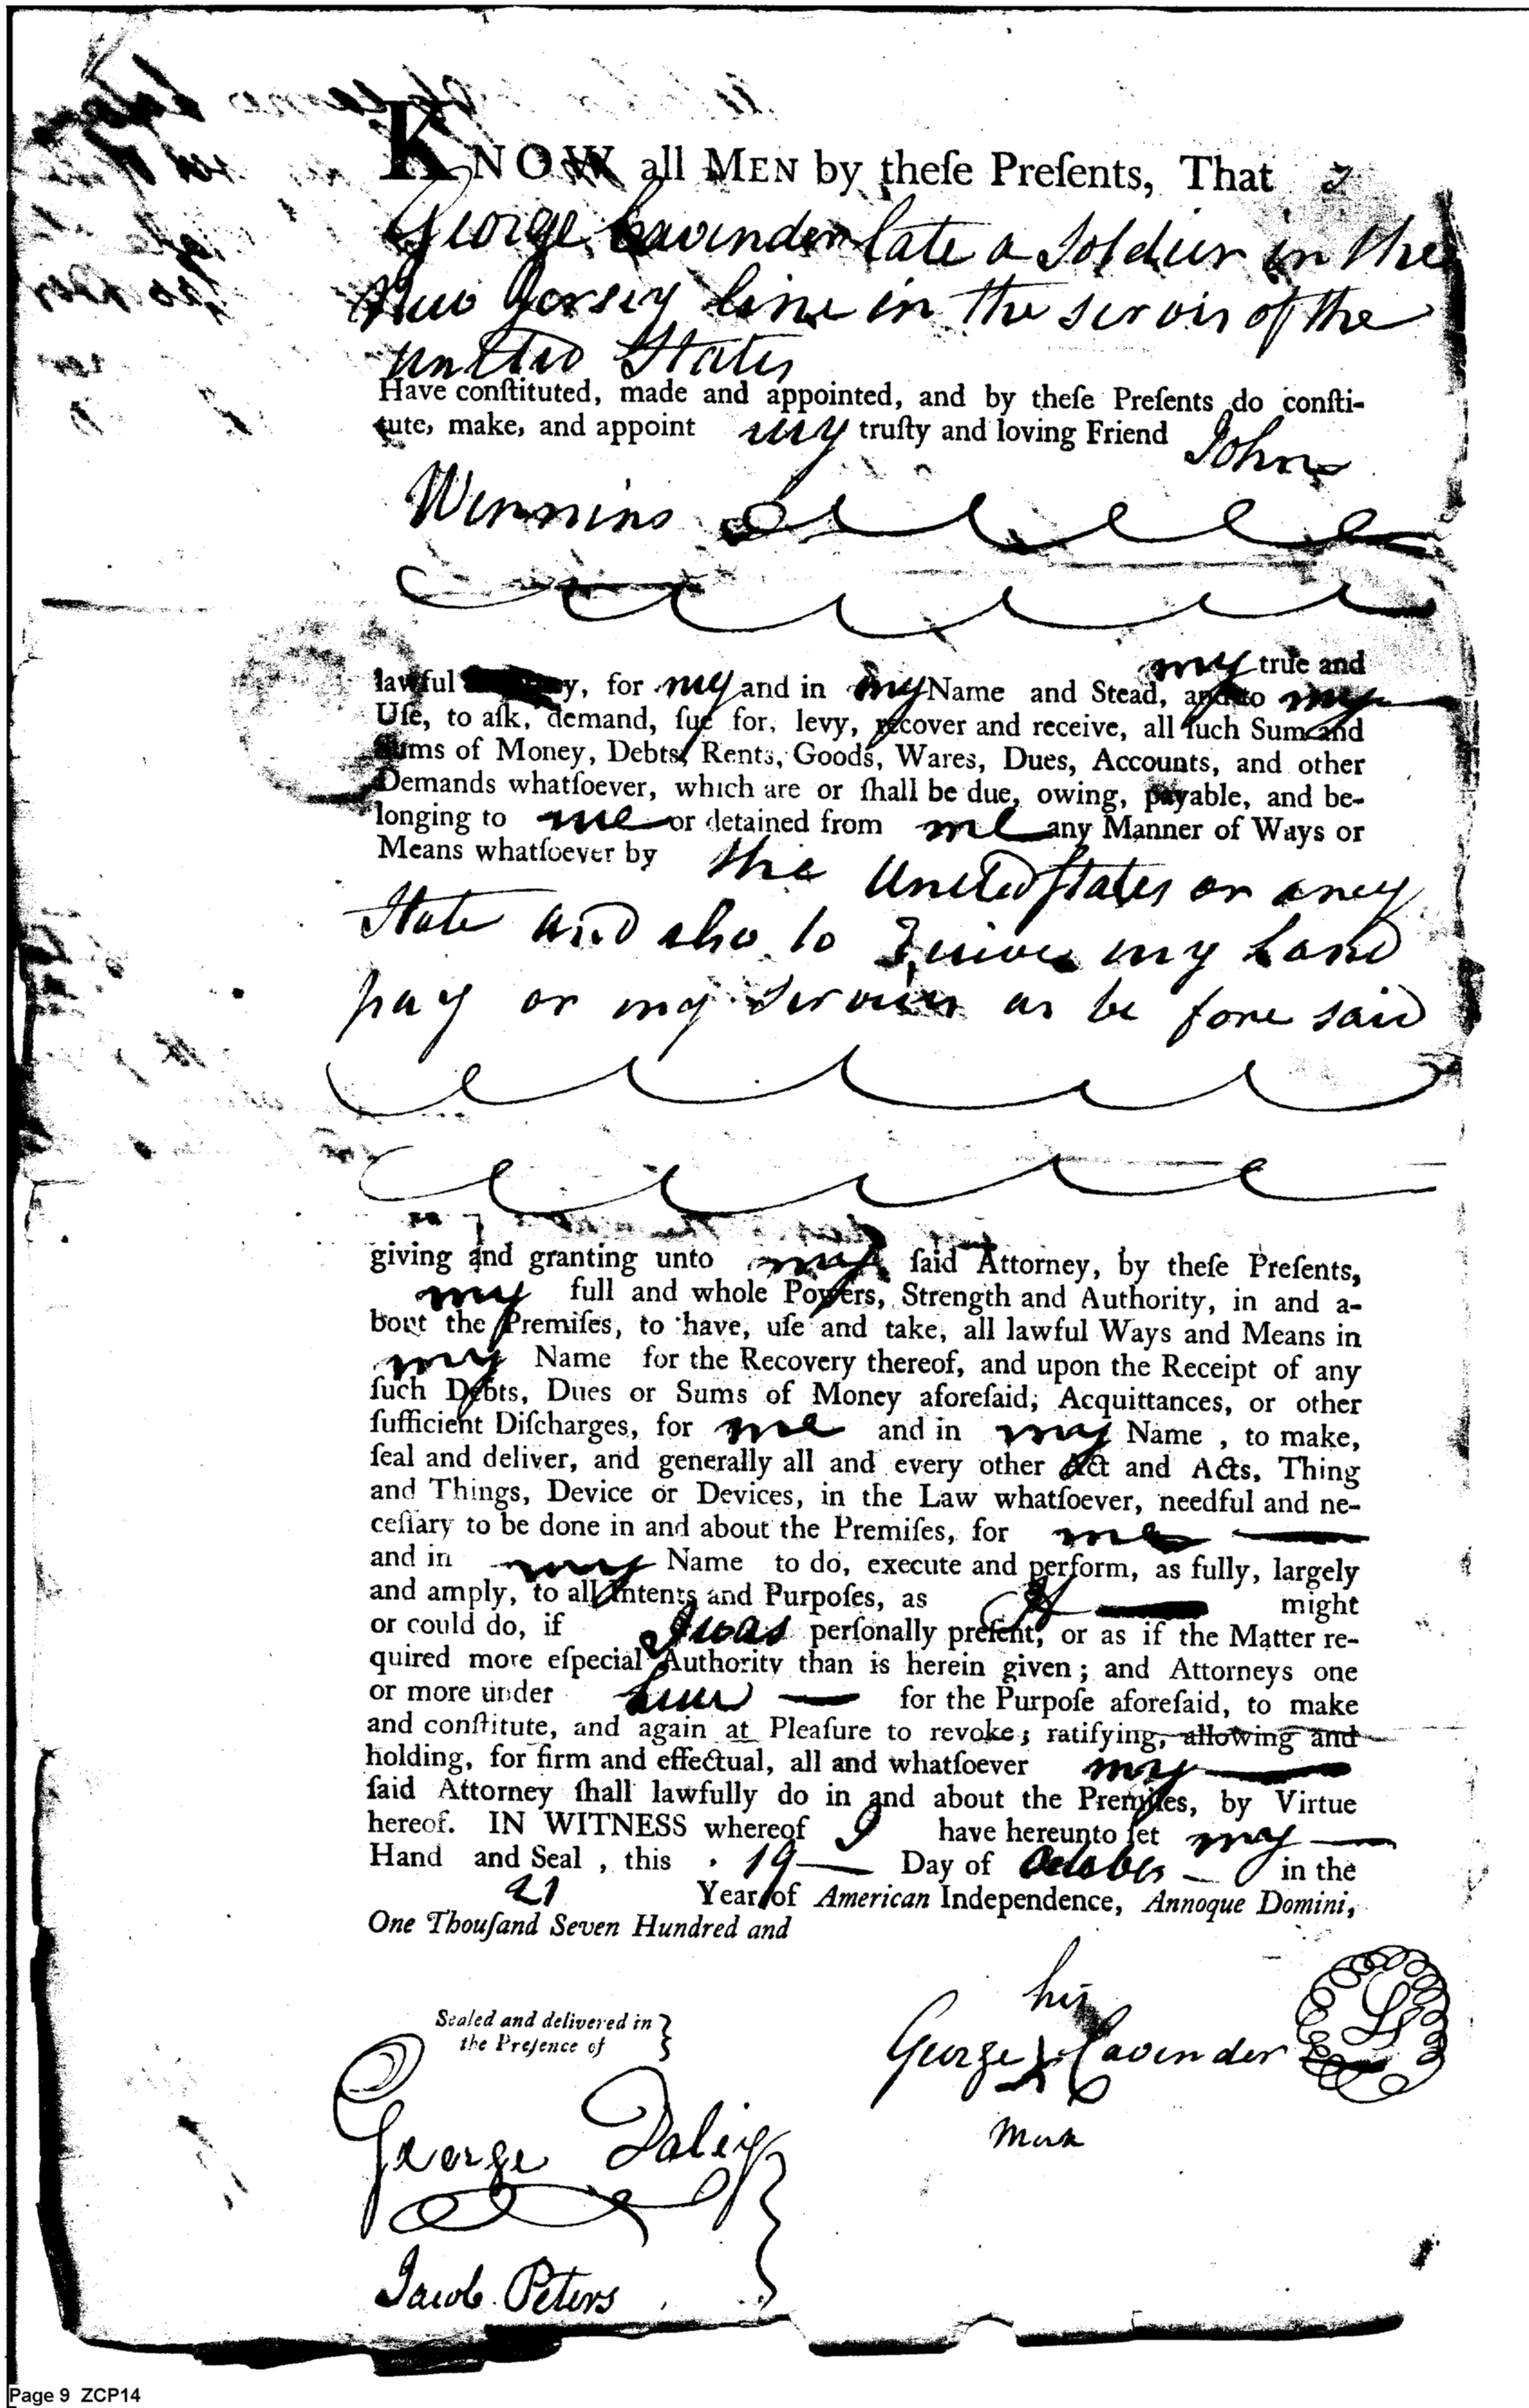 KNOW all MEN by theſe Preſents, That I
George Cavender late a Soldier in the
New Jersey line in the servis of the
United States
Have conſtituted, made and appointed, and by theſe Preſents do conſti-
tute, make, and appoint my truſty and loving Friend John
Winnins
my true and
lawful for my and in my Name and Stead, and to my
Uſe, to aſk, demand, ſue for, levy, recover and receive, all ſuch Sum and
Sums of Money, Debts, Rents, Goods, Wares, Dues, Accounts, and other
Demands whatſoever, which are or ſhall be due, owing, payable, and be-
longing to me or detained from me any Manner of Ways or
Means whatſoever by the United States or aney
State and also to my Land
pay or my as be fore said
giving and granting unto my ſaid Attorney, by theſe Preſents,
my full and whole Powers, Strength and Authority, in and a-
bout the Premiſes, to have, uſe and take, all lawful Ways and Means in
my Name for the Recovery thereof, and upon the Receipt of any
ſuch Debts, Dues or Sums of Money aforeſaid, Acquittances, or other
ſufficient Diſcharges, for me and in my Name , to make,
ſeal and deliver, and generally all and every other Act and Acts, Thing
and Things, Device or Devices, in the Law whatſoever, needful and ne-
ceſſary to be done in and about the Premiſes, for me
and in my Name to do, execute and perform, as fully, largely
and amply, to all Intents and Purpoſes, as I might
or could do, if I was perſonally preſent, or as if the Matter re-
quired more eſpecial Authority than is herein given ; and Attorneys one
or more under him for the Purpoſe aforeſaid, to make
and conſtitute, and again at Pleaſure to revoke ; ratifying, allowing and
holding, for firm and effectual, all and whatſoever my
ſaid Attorney ſhall lawfully do in and about the Premiſes, by Virtue
hereof. IN WITNESS whereof I have hereunto ſet my
Hand and Seal , this 19 Day of October in the
21 Year of American Independence, Annoque Domini,
One Thouſand Seven Hundred and
his
Sealed and delivered in
the Preſence of
George X Cavender LS
Mark
George Daliy
Jacob Peters
Page 9 ZCP14